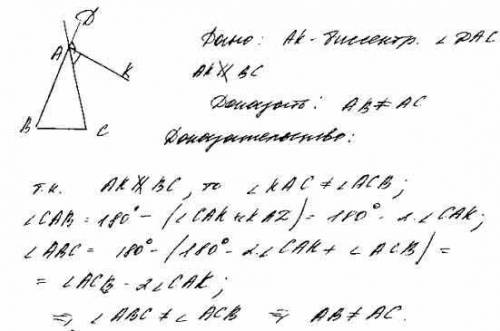 D
A
K
B
C
Дано: AK - биссектр. ∠DAC
AK ∦ BC
Доказать: AB ≠ AC
Доказательство:
т.к. AK ∦ BC, то ∠KAC ≠ ∠ACB;
∠CAB = 180° - (∠CAK + KAZ) = 180° - 2·∠CAK;
∠ABC = 180° - (180° - 2∠CAK + ∠ACB) =
= ∠ACB - 2∠CAK;
=> ∠ABC ≠ ∠ACB => AB ≠ AC.